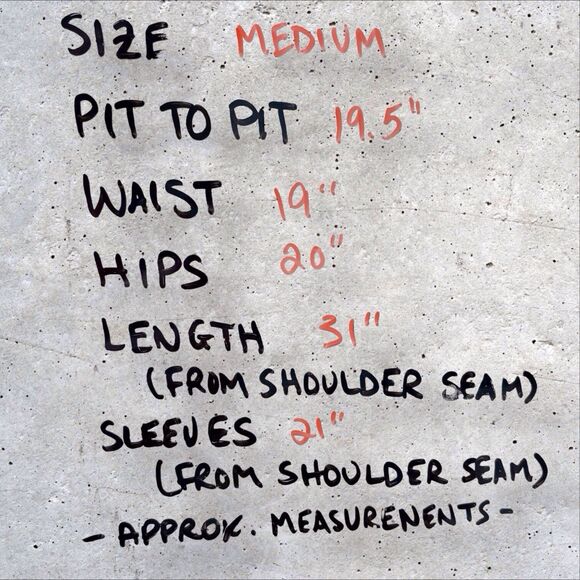 SIZE MEDIUM
PIT TO PIT 19.5"
WAIST 19"
HIPS 20"
LENGTH 31"
(FROM SHOULDER SEAM)
SLEEVES 21"
(FROM SHOULDER SEAM)
- APPROX. MEASURENENTS -